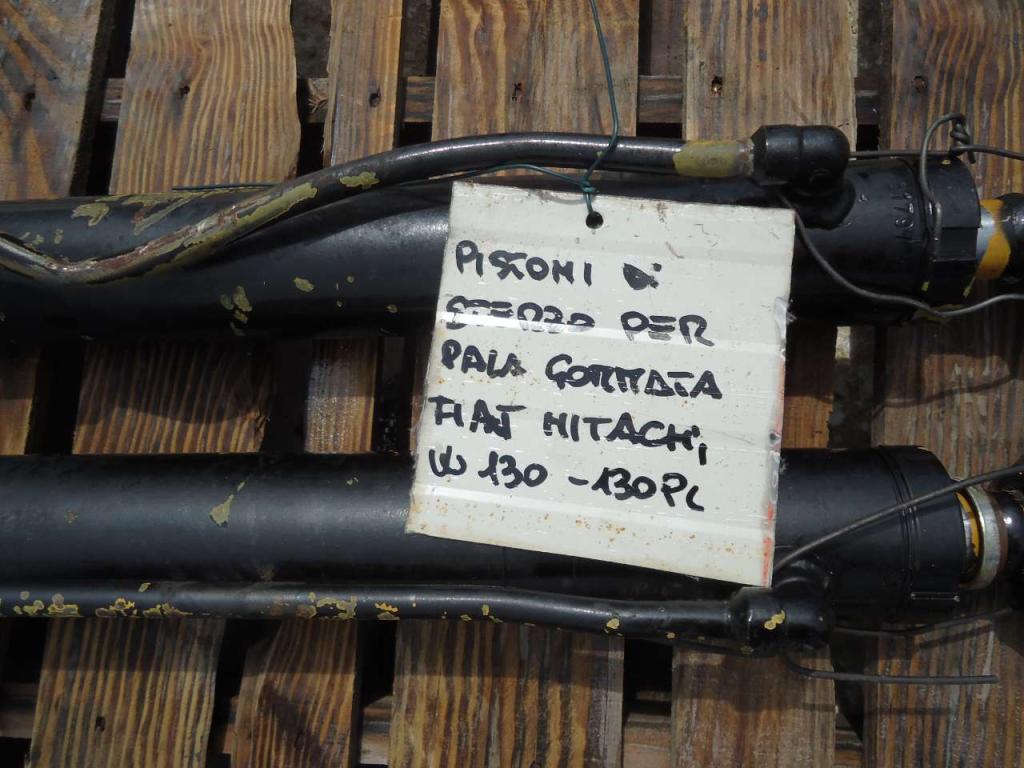 PISTONI di
STERZO PER
PALA GOMMATA
FIAT HITACHI,
W 130 - 130PL